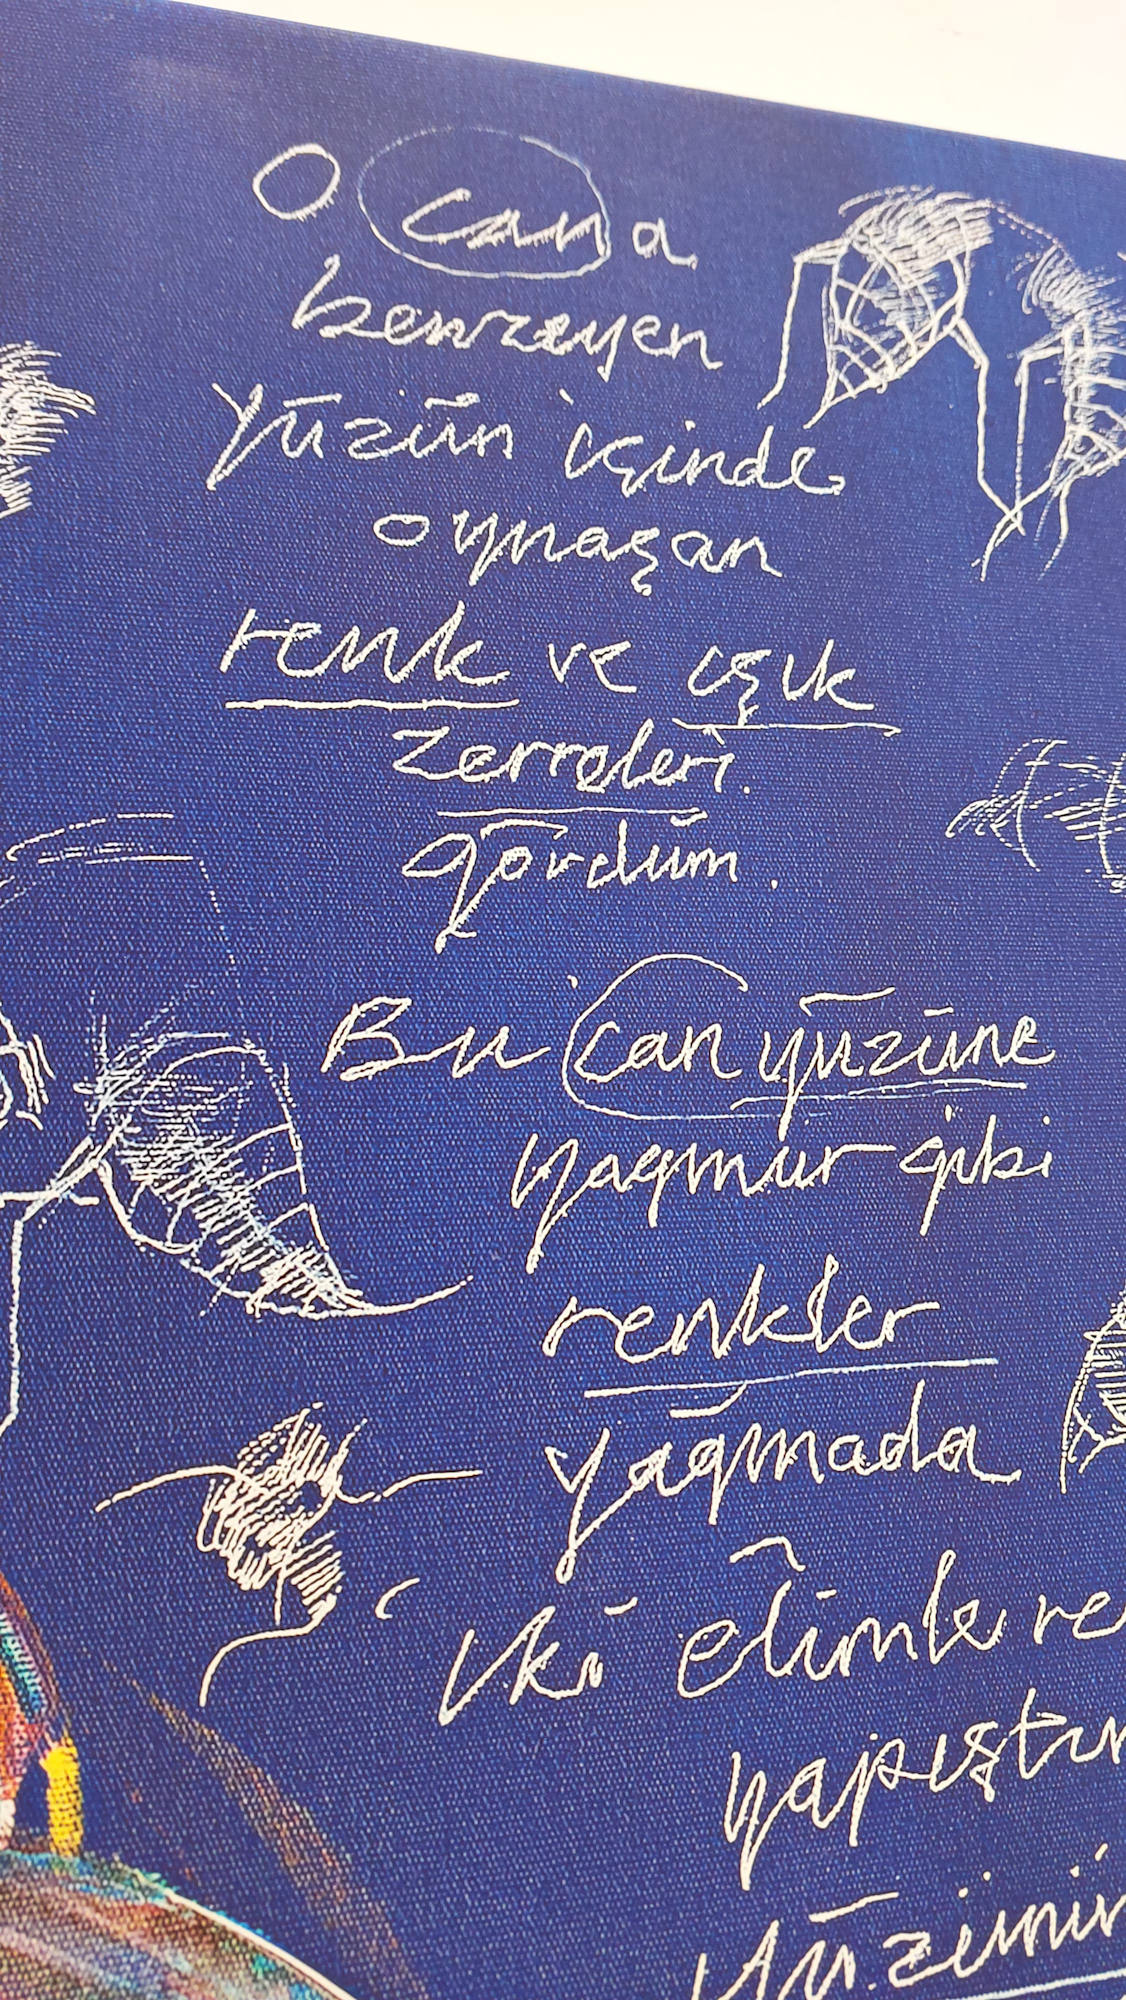 O can a
benzeyen
yüzün içinde
oynaşan
renk ve ışık
zerreleri
gördüm.
Bu can yüzüne
yağmur gibi
renkler
yağmada
İki elimle re
yapıştır
Yüzünün